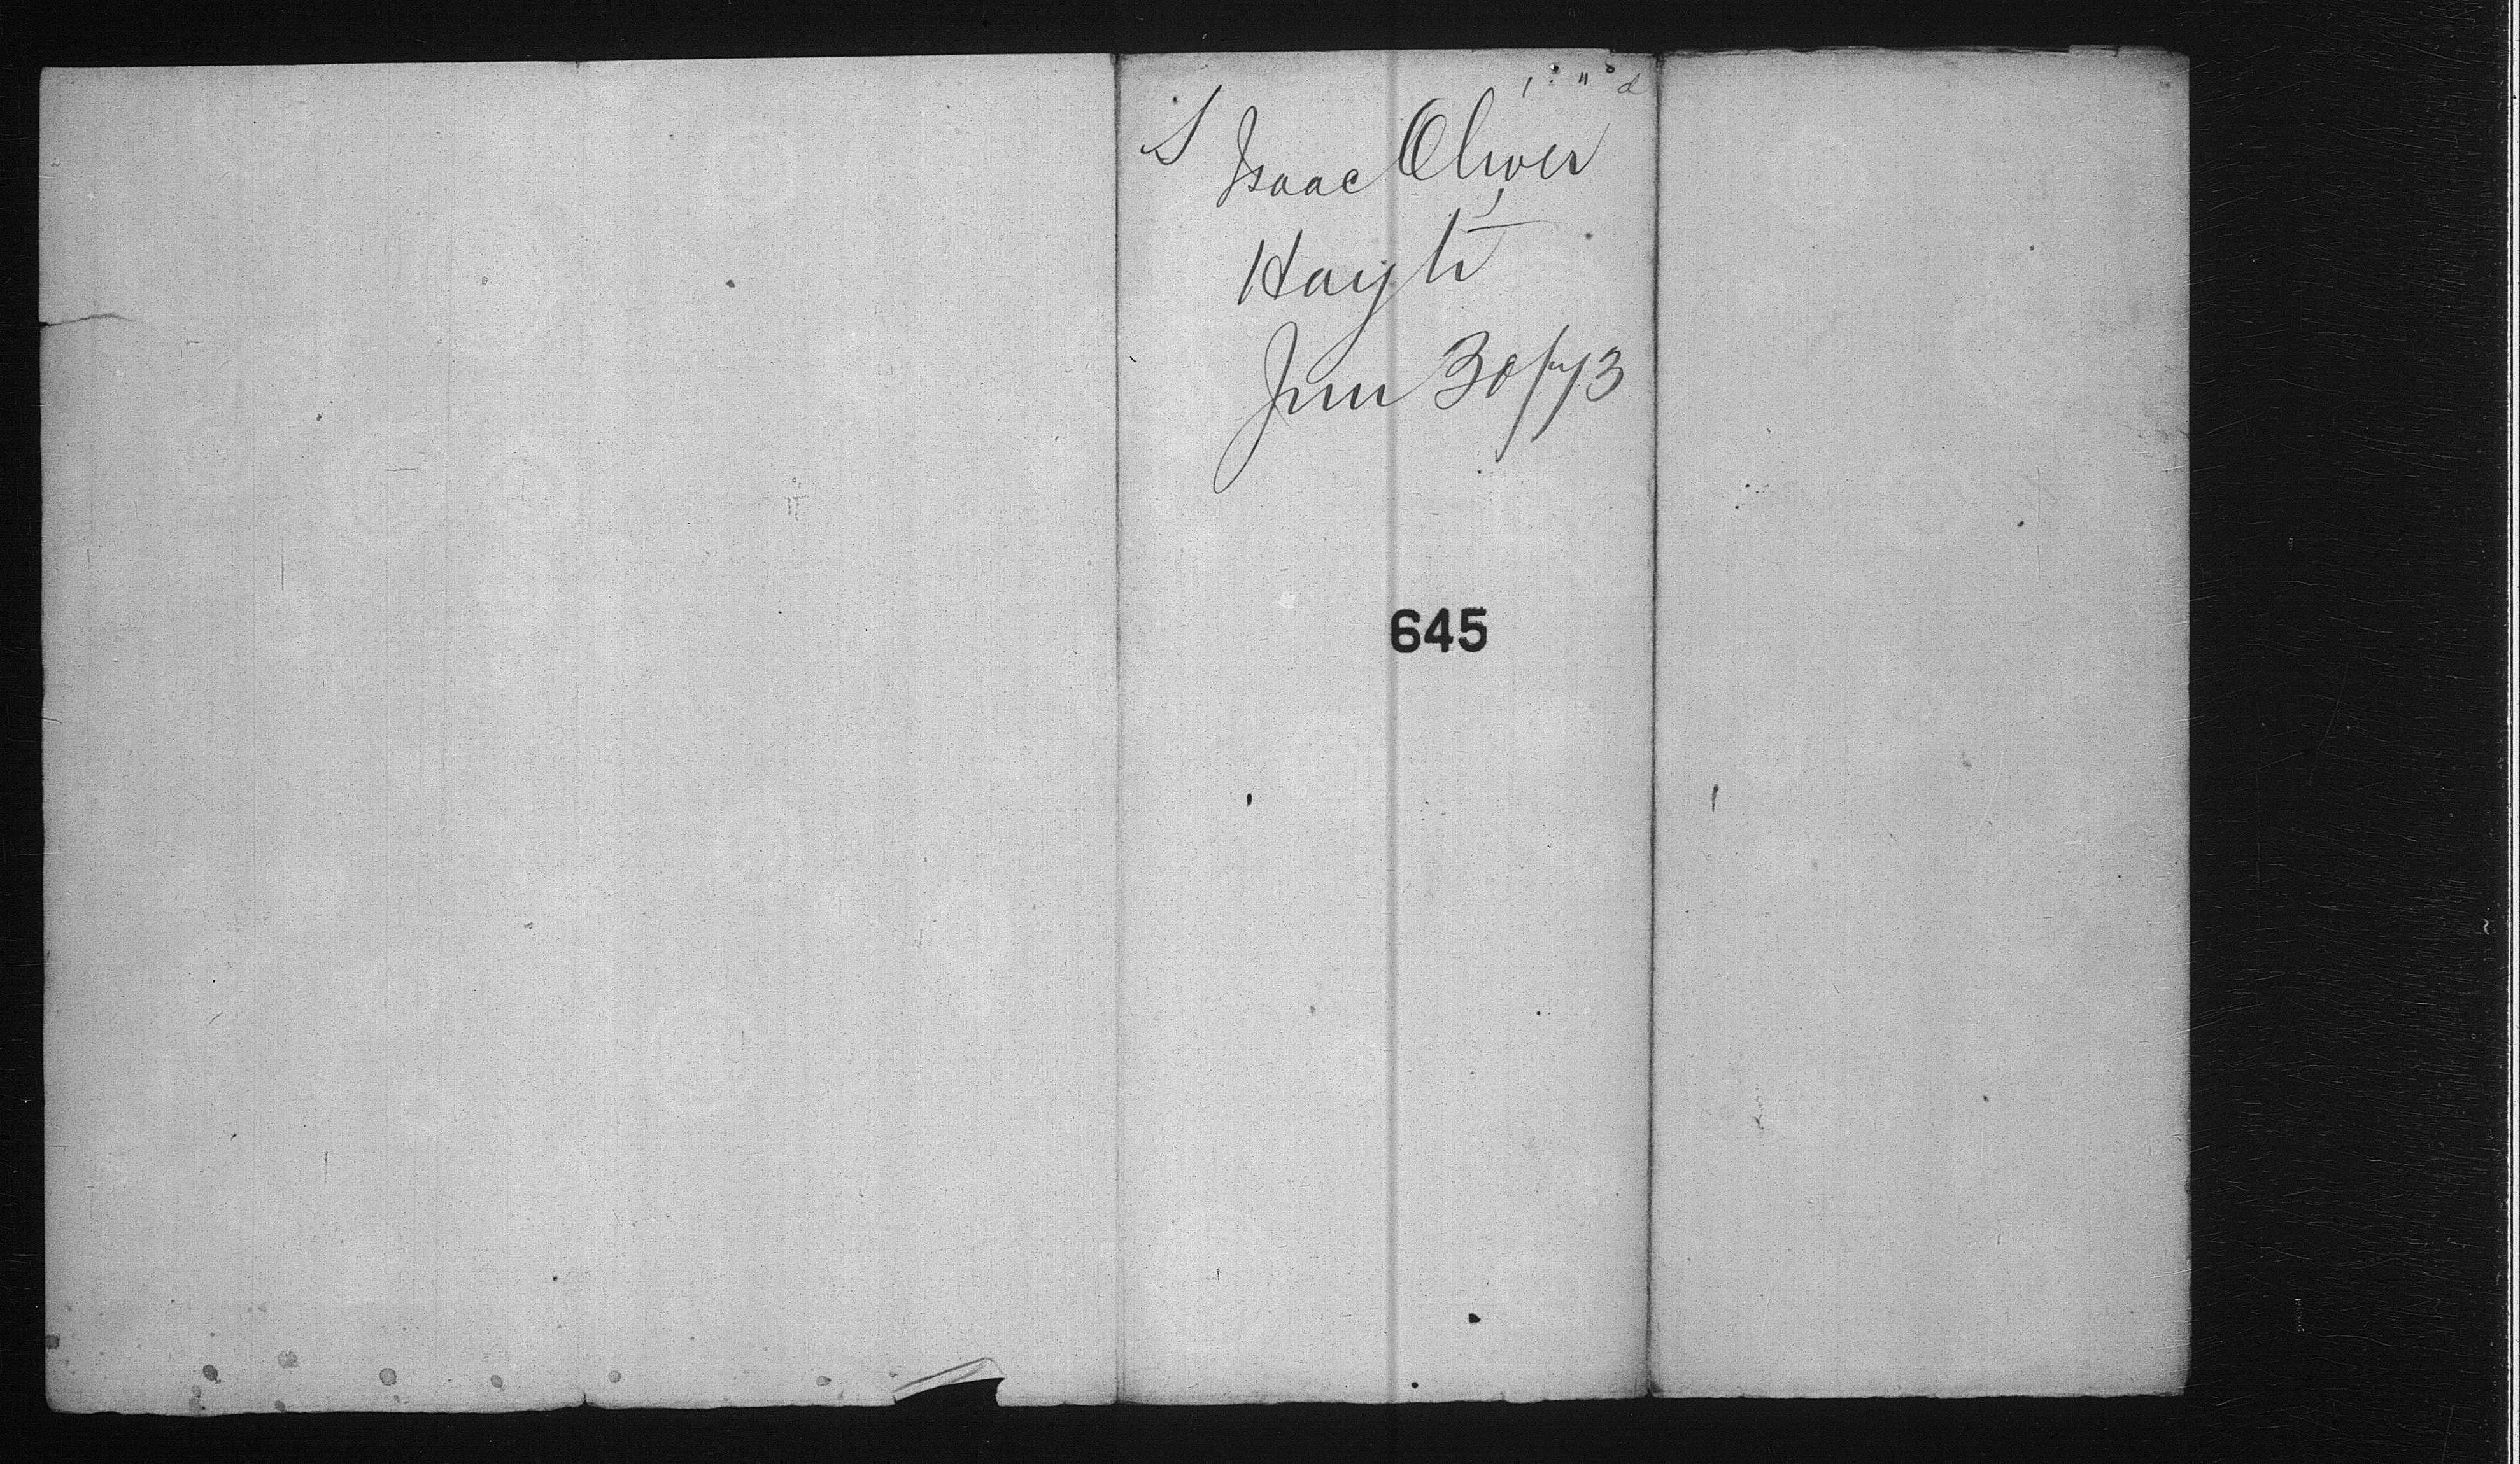 S Isaac Oliver
Hayti
Jun 30/73
645